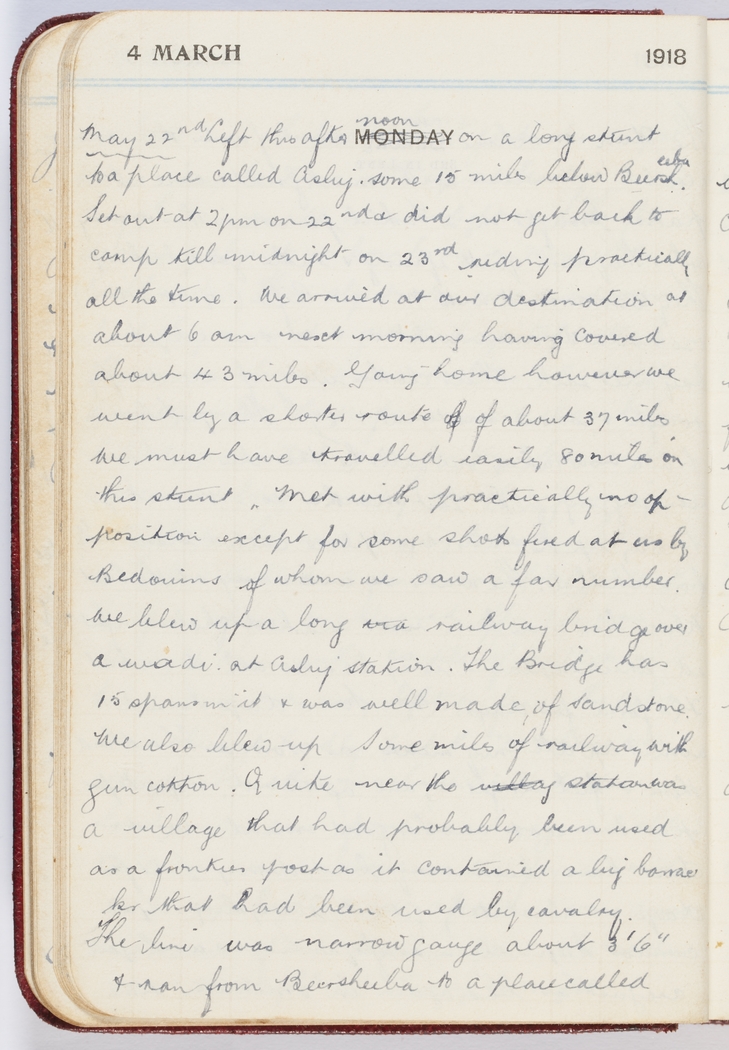 4 MARCH 1918
MONDAY
May 22nd Left this after noon on a long stunt
to a place called Asluj. some 15 miles below Beersh eeba.
Set out at 2pm on 22nd & did not get back to
camp till midnight on 23rd, riding practically
all the time. We arrived at our destination at
about 6 am next morning having covered
about 43 miles. Going home however we
went by a shorter route of of about 37 miles
We must have travelled easily 80 miles on
this stunt. Met with practically no op-
position except for some shots fired at us by
Bedouins of whom we saw a fair number.
We blew up a long via railway bridge over
a wadi. at Asluj station. The Bridge has
15 spans in it & was well made, of Sandstone.
We also blew up Some miles of railway with
gun cotton. Quite near the villag station was
a village that had probably been used
as a frontier post as it contained a big barrac
ks that had been used by cavalry.
The line was narrow gauge about 3'6"
& ran from Beersheeba to a place called